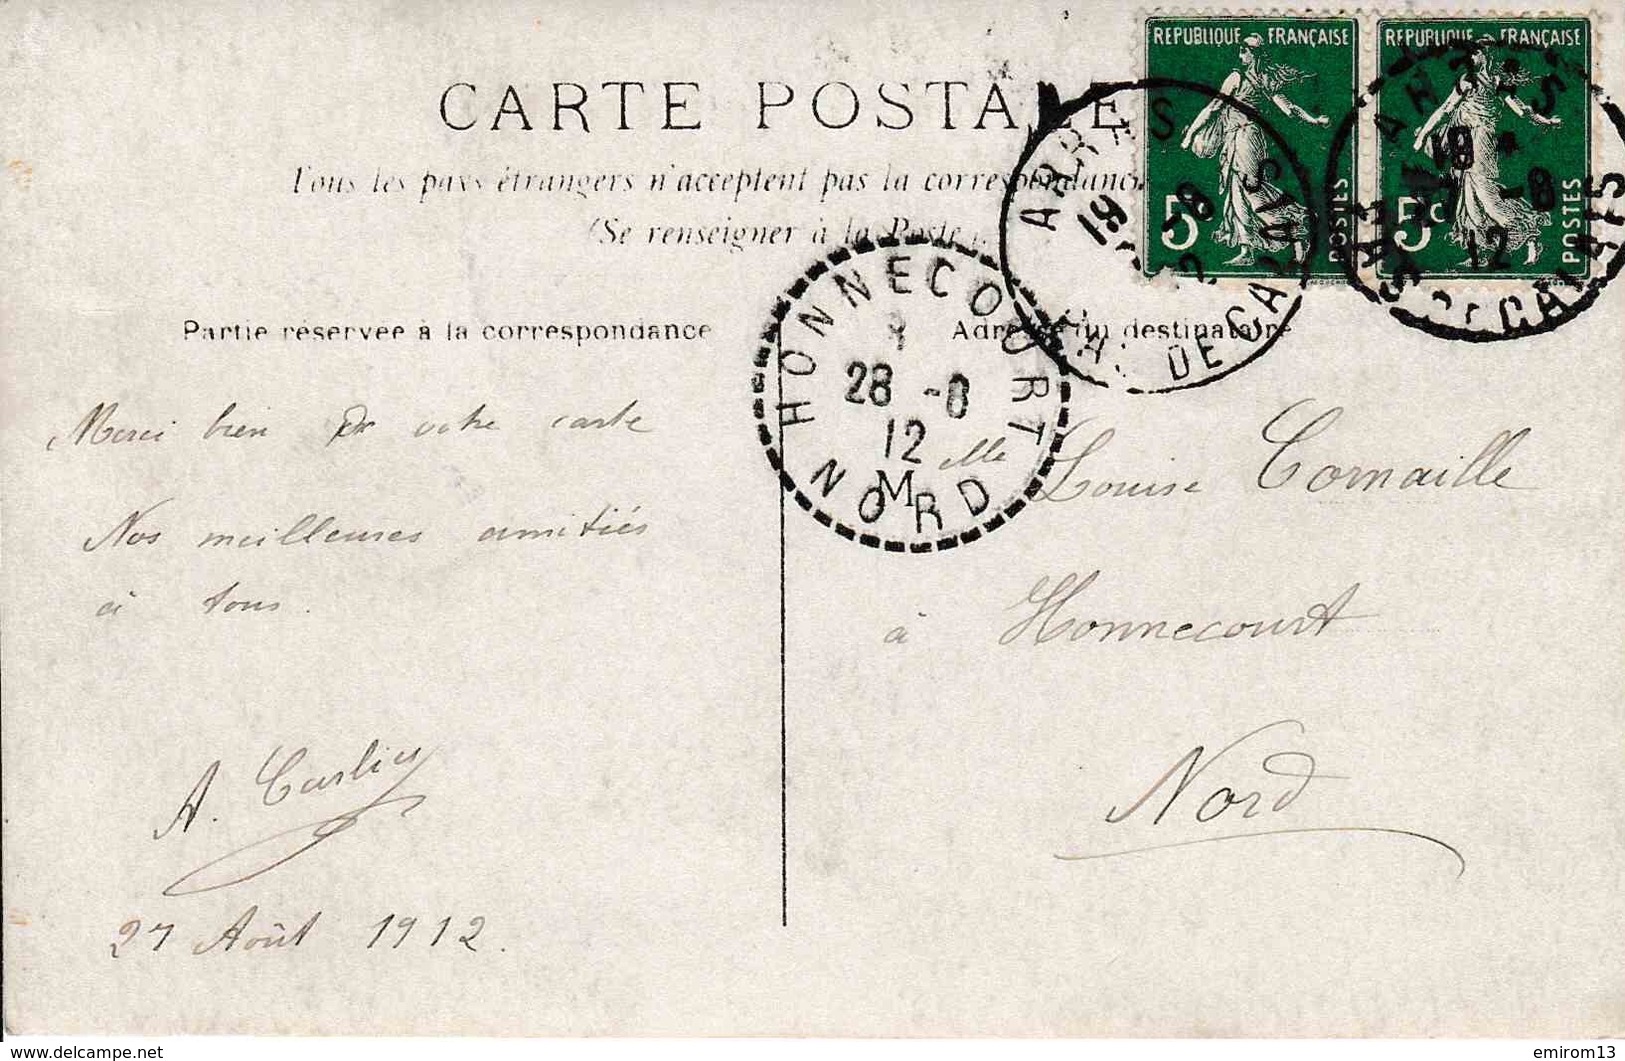 REPUBLIQUE FRANÇAISE
REPUBLIQUE FRANÇAISE
5c
POSTES
5c
POSTES
CARTE POSTALE
Tous les pays étrangers n'acceptent pas la correspondance
(Se renseigner à la Poste)
ARRAS
PAS DE CALAIS
19
-8
12
ARRAS
PAS DE CALAIS
18
-8
12
HONNECOURT
28 -8
12
NORD
M
Partie réservée à la correspondance
Merci bien pr votre carte
Nos meilleures amitiés
à tous.
A.
27 Août 1912.
Adresse du destinataire
Mlle Louise Cornaille
à Honnecourt
Nord
delcampe.net
emirom13